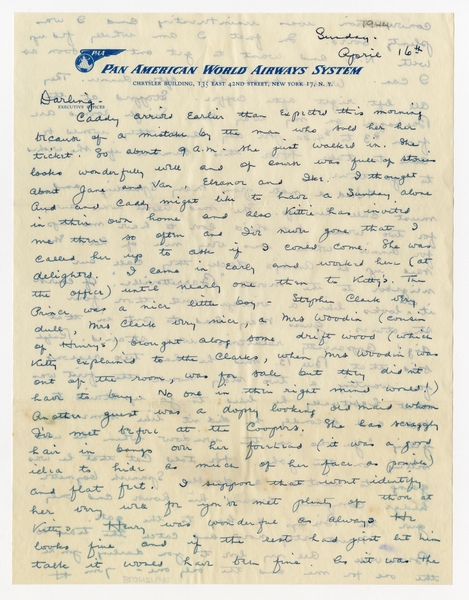 1944
Sunday.
April 16th
PAA
PAN AMERICAN WORLD AIRWAYS SYSTEM
CHRYSLER BUILDING, 135 EAST 42ND STREET, NEW YORK 17, N. Y.
Darling-
EXECUTIVE OFFICES
Caddy arrived earlier than expected this morning
because of a mistake by the man who sold her her
ticket. So about 9 a.m. she just walked in. She
looks wonderfully well and of course was full of stories
about Jane and Van, Eleanor and Ike. I thought
and Caddy might like to have a Sunday alone
in their own home and also Kittie has invited
me there so often and I've never gone that I
called her up to ask if I could come. She was
delighted. I came in early and worked here (at
the office) until nearly one then to Kitty's. The
Prince was a nice little boy - Stephen Clark very
dull, Mrs Clark very nice, a Mrs Woodin (cousin
of Henry's) brought along some drift wood (which
Kitty explained to the Clarks, when Mrs Woodin was
out of the room, was for sale but they didn't
have to buy. No one in their right mind would!)
Another guest was a dopey looking old maid whom
I've met before at the Coopers. She has scraggly
hair in bangs over her forehead (it was a good
idea to hide as much of her face as possible)
and flat feet. I suppose that wont identify
her very well for you've met plenty of them at
Kitty's. Henry was wonderful as always. He
looks fine and if the rest had just let him
talk it would have been fine. As it was the